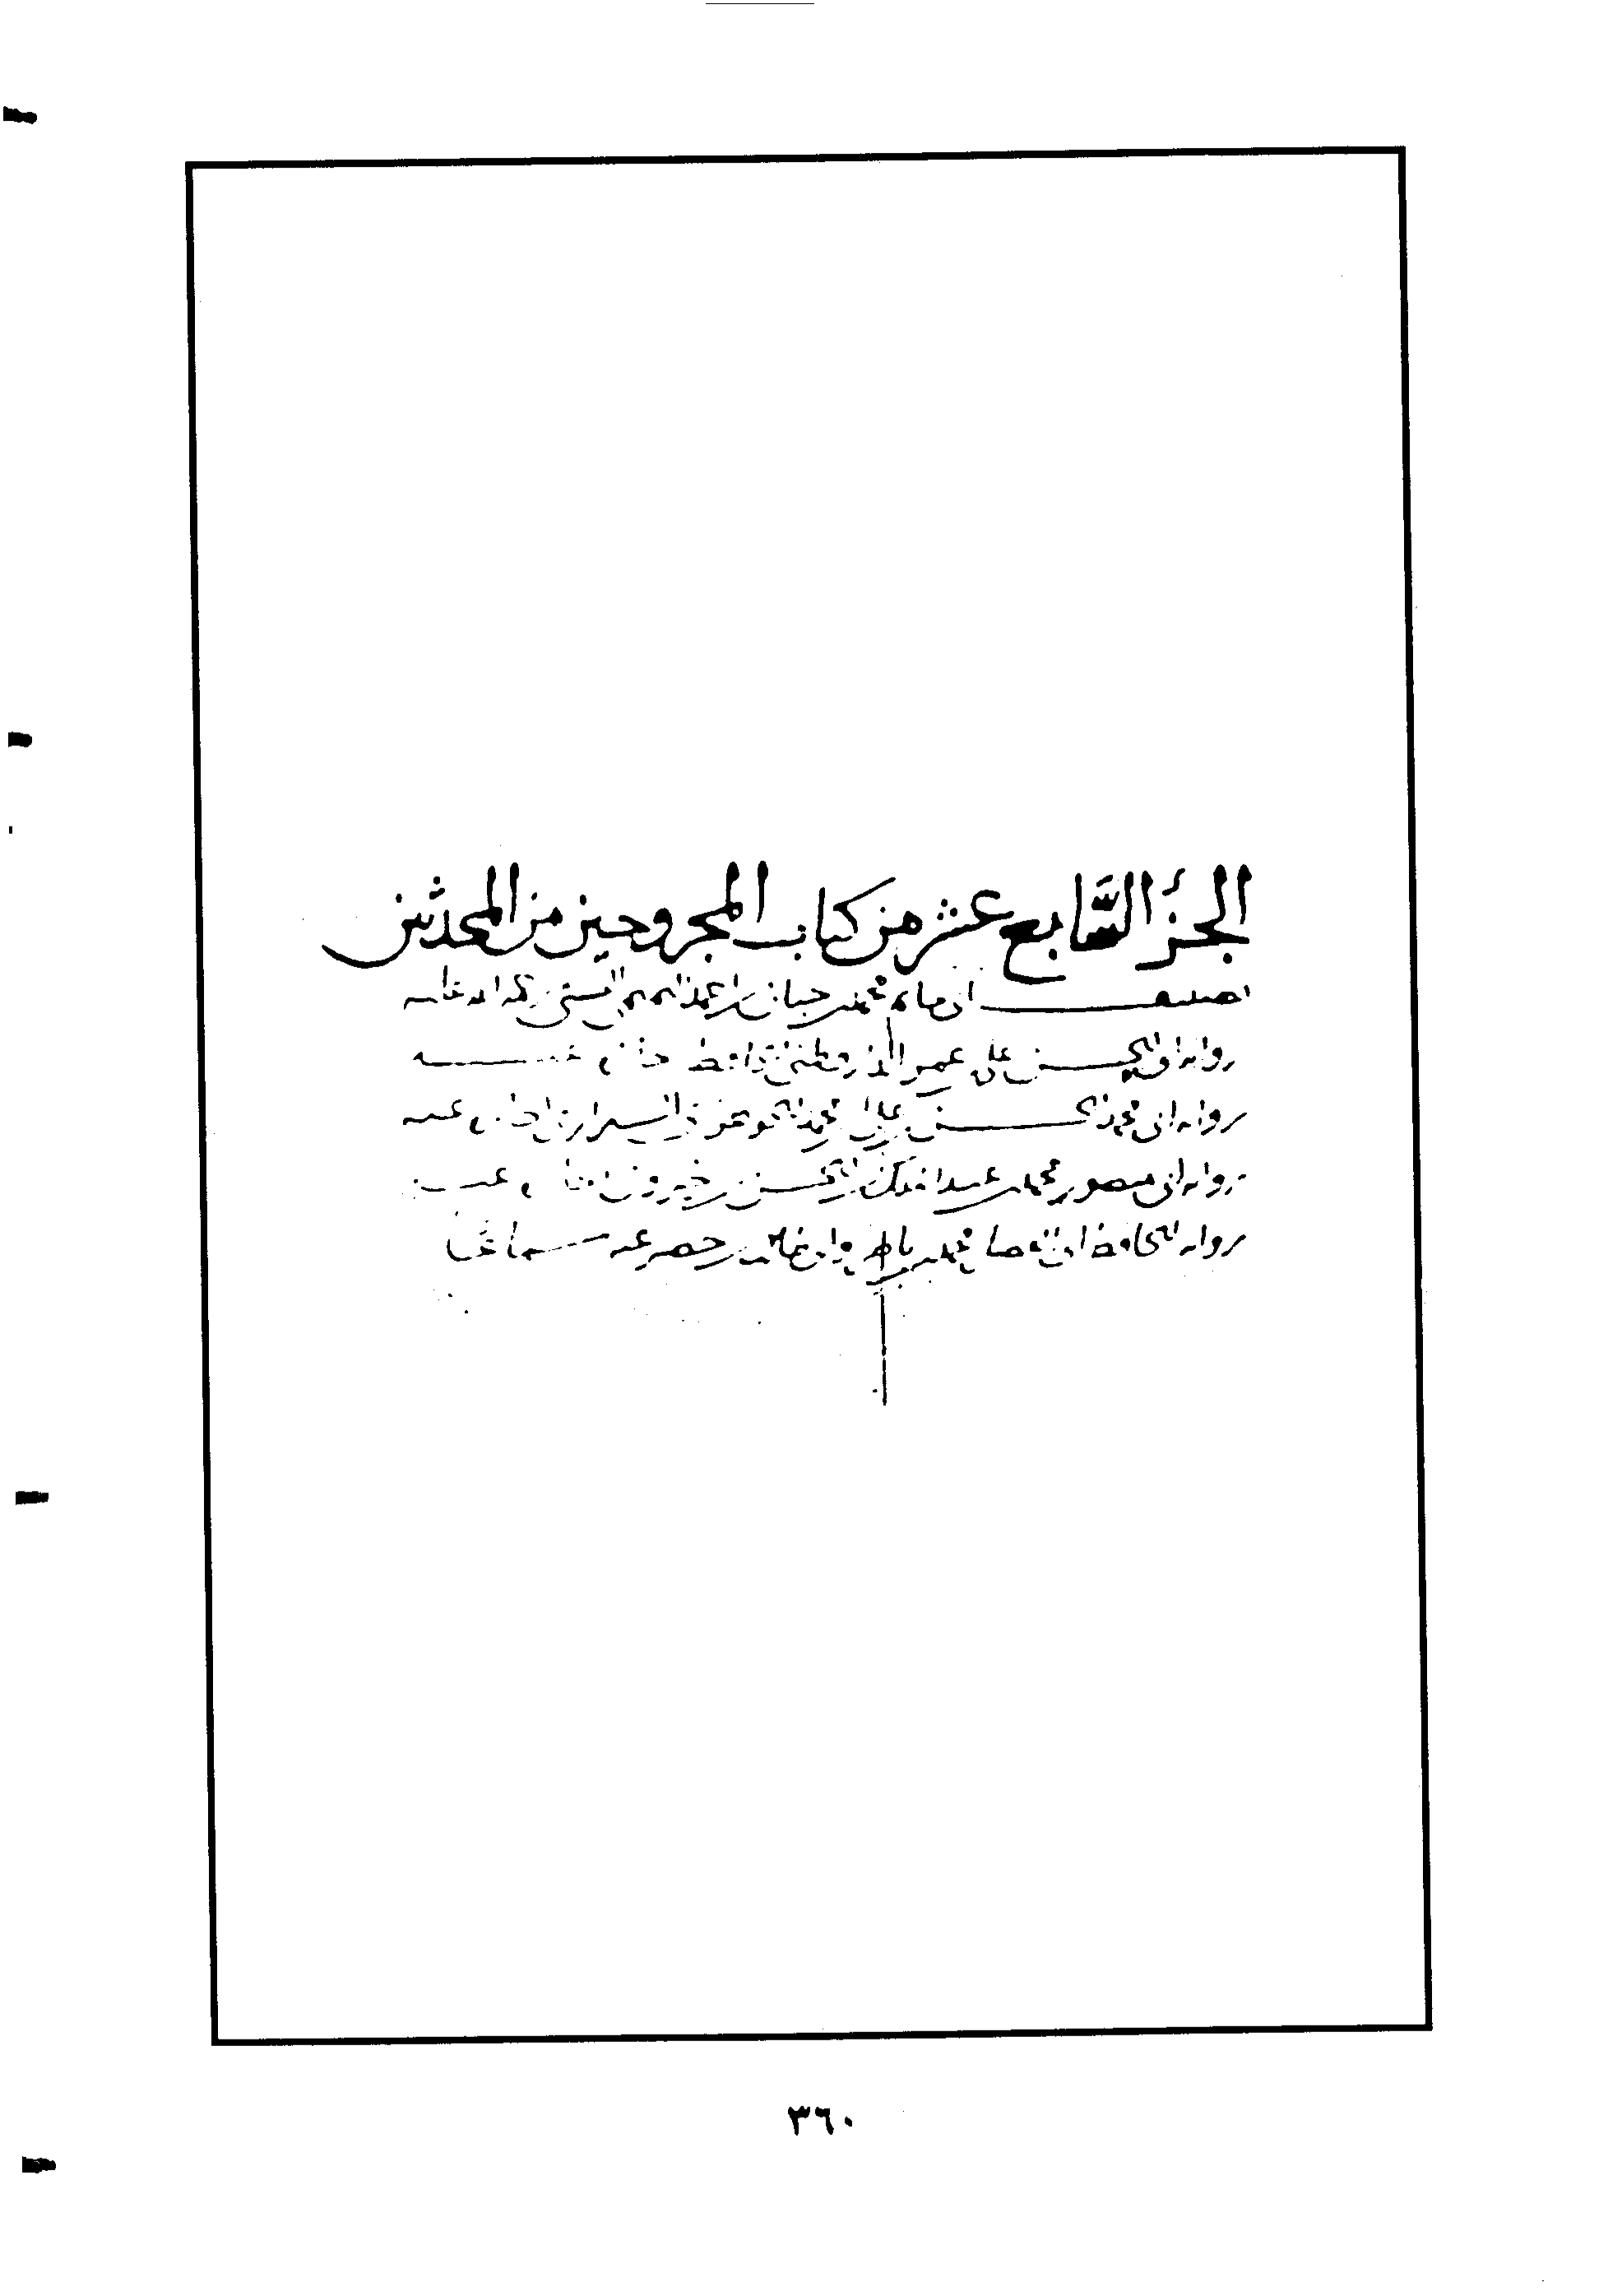 الجزء السابع عشر من كتاب المجروحين من المحدثين
تصنيف ابي حاتم محمد بن حبان بن احمد التميمي البستي رحمة الله عليه
رواية ابي الحسن علي بن عمر الدارقطني الحافظ عنه
رواية ابي محمد الحسن بن علي بن محمد الجوهري عنه
رواية ابي منصور محمد بن عبد الملك بن الحسن بن خيرون عنه
رواية الحافظ ابي الفضل محمد بن ناصر عنه سماعا
٣٦٠